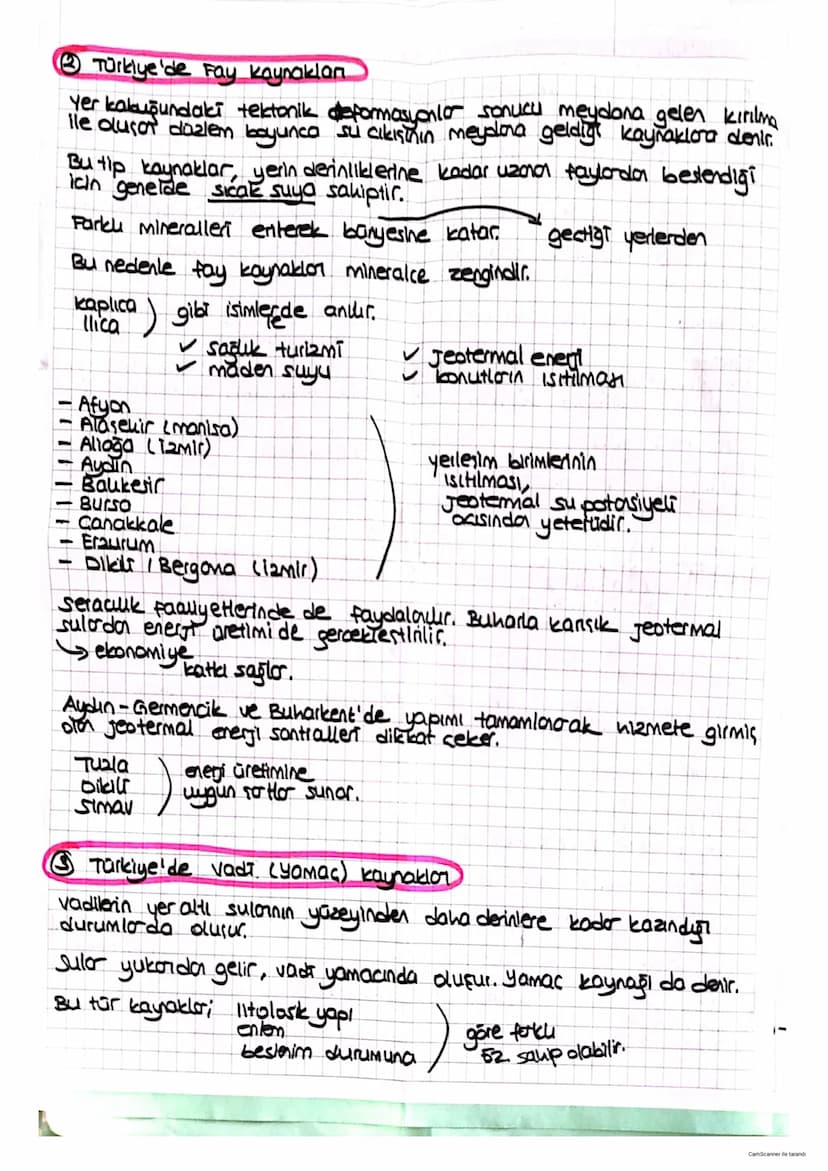 2 Türkiye'de Fay Kaynakları
Yer kabuğundaki tektonik deformasyonlar sonucu meydana gelen kırılma
ile oluşan düzlem boyunca su çıkışının meydana geldiği kaynaklara denir.
Bu tip kaynaklar, yerin derinliklerine kadar uzanan faylardan beslendiği
için genelde sıcak suya sahiptir.
Farklı mineralleri eriterek bünyesine katar. geçtiği yerlerden
Bu nedenle fay kaynakları mineralce zengindir.
kaplıca
ılıca
) gibi isimlerde anılır.
✓ sağlık turizmi
✓ maden suyu
✓ jeotermal enerji
✓ konutların ısıtılması
- Afyon
- Alaşehir (manisa)
- Aliağa (İzmir)
- Aydın
- Balıkesir
- Bursa
- Çanakkale
- Erzurum
- Dikili / Bergama (İzmir)
yerleşim birimlerinin
ısıtılması,
jeotermal su potasiyeli
açısından yeterlidir.
Seracılık faaliyetlerinde de faydalanılır. Buharla karışık jeotermal
sulardan enerji üretimi de gerçekleştirilir.
↳ ekonomiye
katkı sağlar.
Aydın-Germencik ve Buharkent'de yapımı tamamlanarak hizmete girmiş
olan jeotermal enerji santralleri dikkat çeker.
Tuzla
Dikili
Simav
) enerji üretimine
uygun şartlar sunar.
3 Türkiye'de vadi (yamaç) kaynakları
Vadilerin yer altı sularının yüzeyinden daha derinlere kadar kazındığı
durumlarda oluşur.
Sular yukarıdan gelir, vadi yamacında oluşur. Yamaç kaynağı da denir.
Bu tür kaynakları litolojik yapı
enlem
beslenim durumuna
) göre farklı
sahip olabilir.
CamScanner ile tarandı